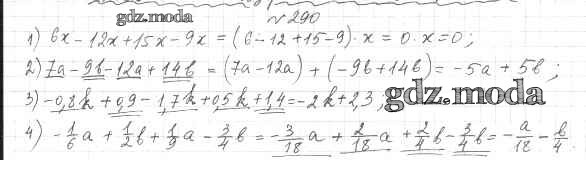 gdz.moda № 290
1) 6x - 12x + 15x - 9x = (6 - 12 + 15 - 9) · x = 0 · x = 0;
2) 7a - 9b - 12a + 14b = (7a - 12a) + (-9b + 14b) = -5a + 5b;
3) -0,8k + 0,9 - 1,7k + 0,5k + 1,4 = -2k + 2,3; gdz.moda
4) -1/6 a + 1/2 b + 1/9 a - 3/4 b = -3/18 a + 2/18 a + 2/4 b - 3/4 b = -a/18 - b/4.